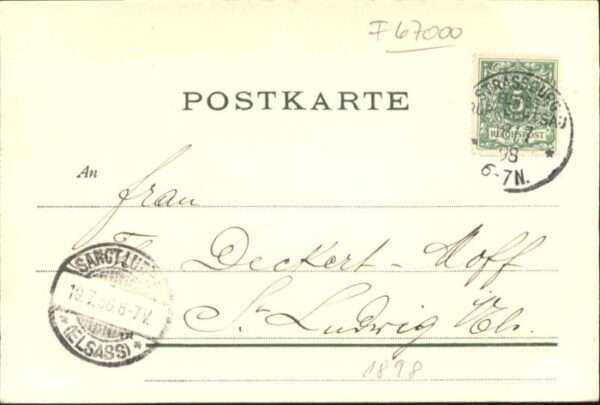 F 67000
POSTKARTE
5
REICHSPOST
STRASSBURG
98
6-7N.
An
Frau
Deckert-Hoff
St. Ludwig i/Els.
SANCT-LUDWIG
6-7V.
* (ELSASS) *
1898